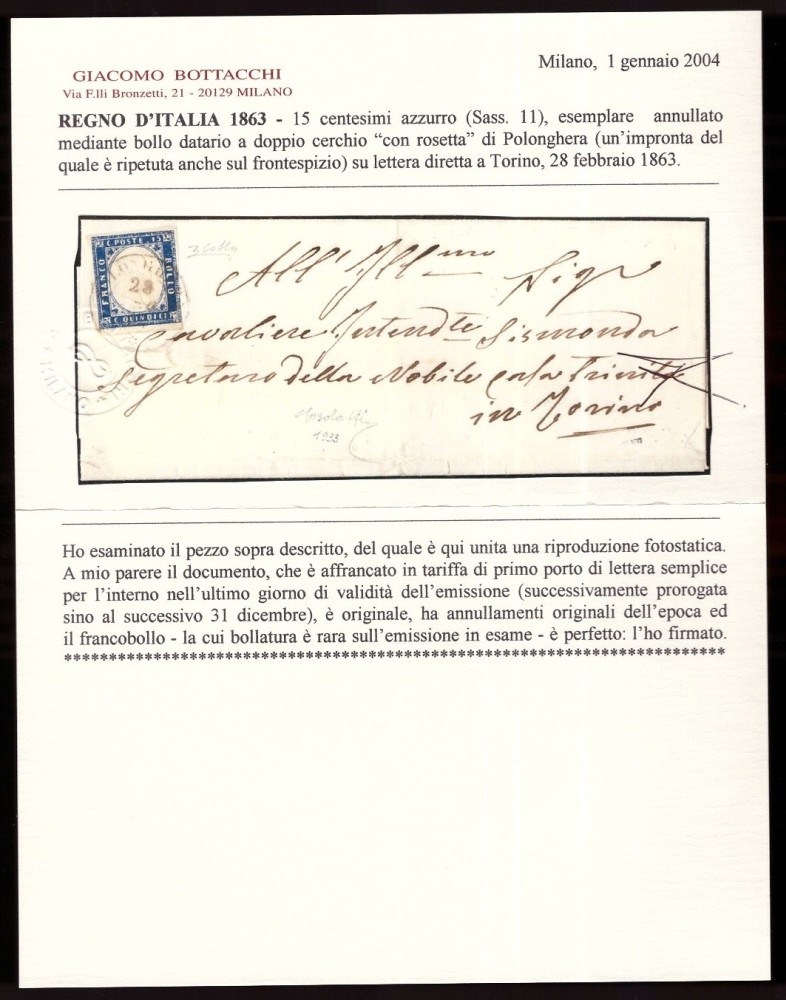 GIACOMO BOTTACCHI
Via F.lli Bronzetti, 21 - 20129 MILANO
Milano, 1 gennaio 2004
REGNO D'ITALIA 1863 - 15 centesimi azzurro (Sass. 11), esemplare annullato
mediante bollo datario a doppio cerchio “con rosetta” di Polonghera (un'impronta del
quale è ripetuta anche sul frontespizio) su lettera diretta a Torino, 28 febbraio 1863.
C POSTE 15
FRANCO
BOLLO
C QUINDICI
28
All' Ill mo Sigr
Cavaliere Intend te Sismonda
Segretaro della Nobile casa Trinità
in Torino
1933
Ho esaminato il pezzo sopra descritto, del quale è qui unita una riproduzione fotostatica.
A mio parere il documento, che è affrancato in tariffa di primo porto di lettera semplice
per l'interno nell'ultimo giorno di validità dell'emissione (successivamente prorogata
sino al successivo 31 dicembre), è originale, ha annullamenti originali dell'epoca ed
il francobollo - la cui bollatura è rara sull'emissione in esame - è perfetto: l'ho firmato.